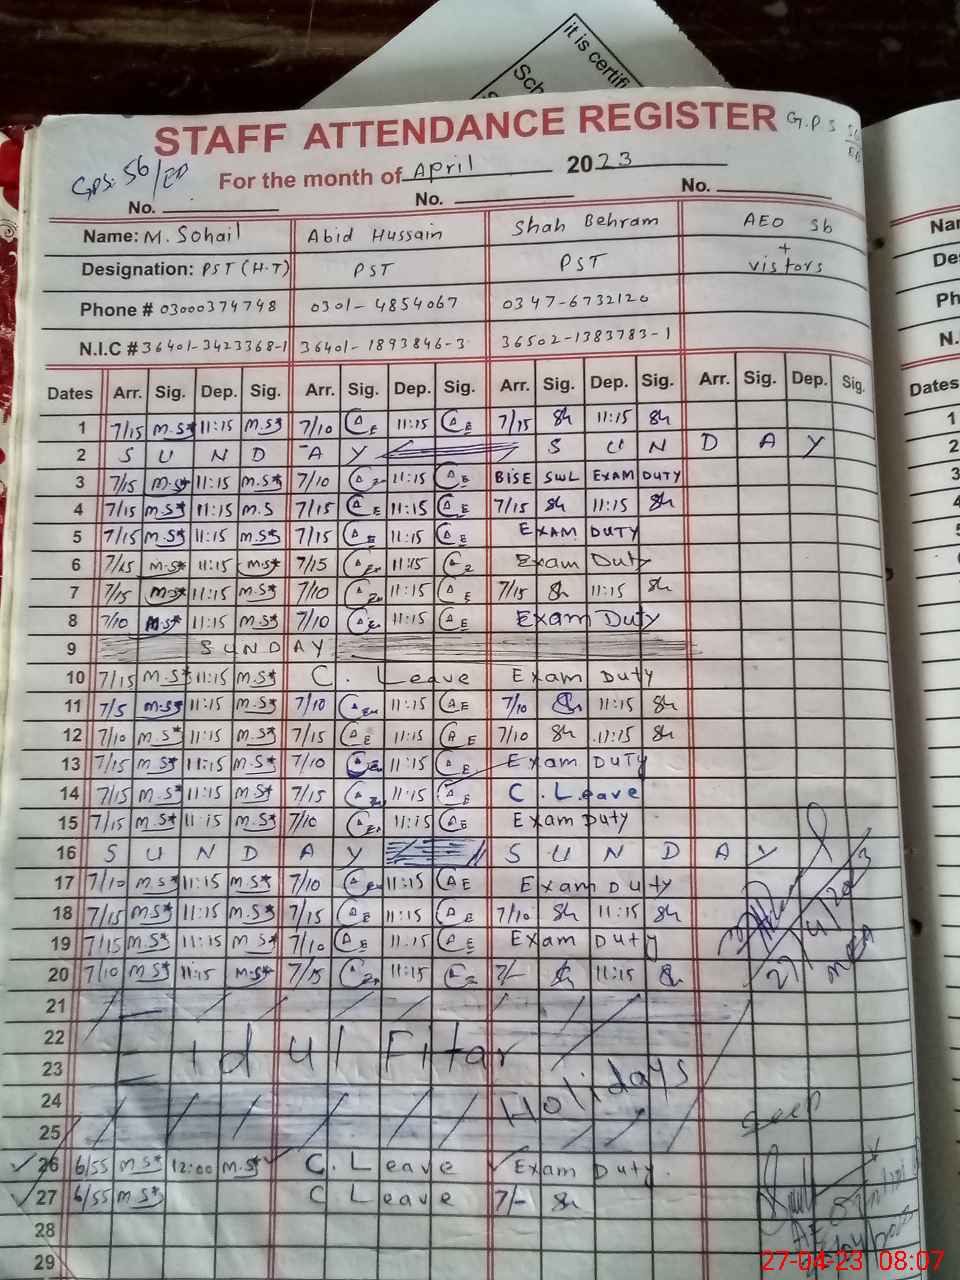 it is certif
Sch
STAFF ATTENDANCE REGISTER G.P S
GPS: 56/ED For the month of April 2023
No. No. No.
Name: M. Sohail Abid Hussain Shah Behram AEO Sb
Designation: PST (H.T) PST PST + vistors
Phone # 03000374748 0301-4854067 0347-6732120
N.I.C # 36401-3423368-1 36401-1893846-3 36502-1383783-1
Dates Arr. Sig. Dep. Sig. Arr. Sig. Dep. Sig. Arr. Sig. Dep. Sig. Arr. Sig. Dep. Sig. Dates
1 7/15 M.S 11:15 M.S 7/10 11:15 7/15 Sh 11:15 Sh 1
2 S U N D A Y S U N D A Y 2
3 7/15 M.S 11:15 M.S 7/10 11:15 AE BISE SWL EXAM DUTY 3
4 7/15 M.S 11:15 M.S 7/15 AE 11:15 AE 7/15 Sh 11:15 Sh 4
5 7/15 M.S 11:15 M.S 7/15 AE 11:15 AE EXAM DUTY 5
6 7/15 M.S 11:15 M.S 7/15 11:15 Exam Duty
7 7/15 M.S 11:15 M.S 7/10 11:15 AE 7/15 Sh 11:15 Sh 7
8 7/10 M.S 11:15 M.S 7/10 11:15 AE Exam Duty 8
9 SUNDAY 9
10 7/15 M.S 11:15 M.S C. Leave Exam Duty 1
11 7/5 M.S 11:15 M.S 7/10 11:15 AE 7/10 Sh 11:15 Sh
12 7/10 M.S 11:15 M.S 7/15 AE 11:15 AE 7/10 Sh 11:15 Sh
13 7/15 M.S 11:15 M.S 7/10 11:15 AE Exam DUTY
14 7/15 M.S 11:15 M.S 7/15 11:15 AE C. Leave
15 7/15 M.S 11:15 M.S 7/10 11:15 AE Exam Duty
16 S U N D A Y S U N D A Y
17 7/10 M.S 11:15 M.S 7/10 11:15 AE Exam Duty
18 7/15 M.S 11:15 M.S 7/15 AE 11:15 AE 7/10 Sh 11:15 Sh
19 7/15 M.S 11:15 M.S 7/10 AE 11:15 AE Exam Duty
20 7/10 M.S 11:15 M.S 7/15 11:15 7/- Sh 11:15 Sh
27/4/2023
MEA
21
22 Eid ul Fitar
23
24 Holidays
25
Seen
26 6/55 M.S 12:00 M.S C. Leave Exam Duty.
27 6/55 M.S C Leave 7/- Sh
28
29
27-04-23 08:07